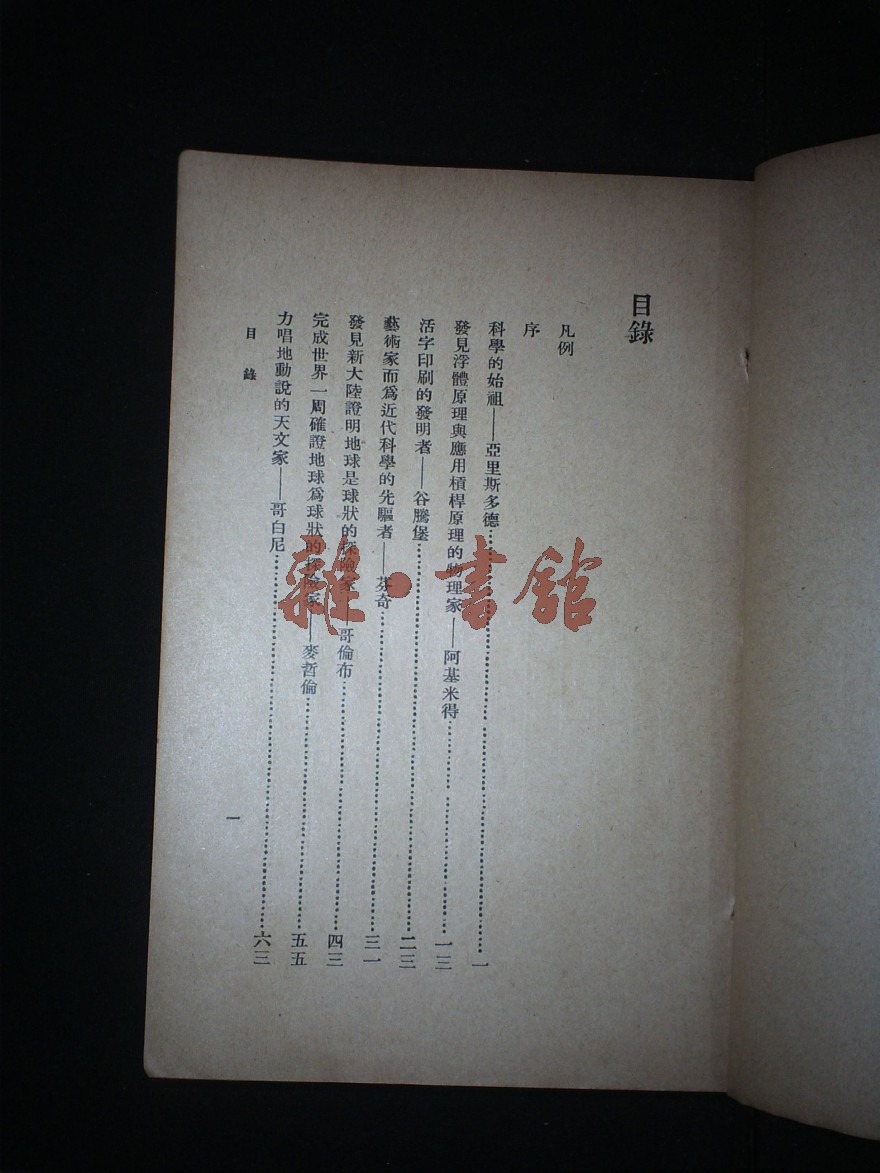 目錄
凡例
序
科學的始祖——亞里斯多德………一
發見浮體原理與應用槓桿原理的物理家——阿基米得………一三
活字印刷的發明者——谷騰堡………二三
藝術家而為近代科學的先驅者——芬奇………三一
發見新大陸證明地球是球狀的探險家——哥倫布………四三
完成世界一周確證地球爲球狀的探險家——麥哲倫………五五
力唱地動說的天文家——哥白尼………六三
目錄
一
雜·書館